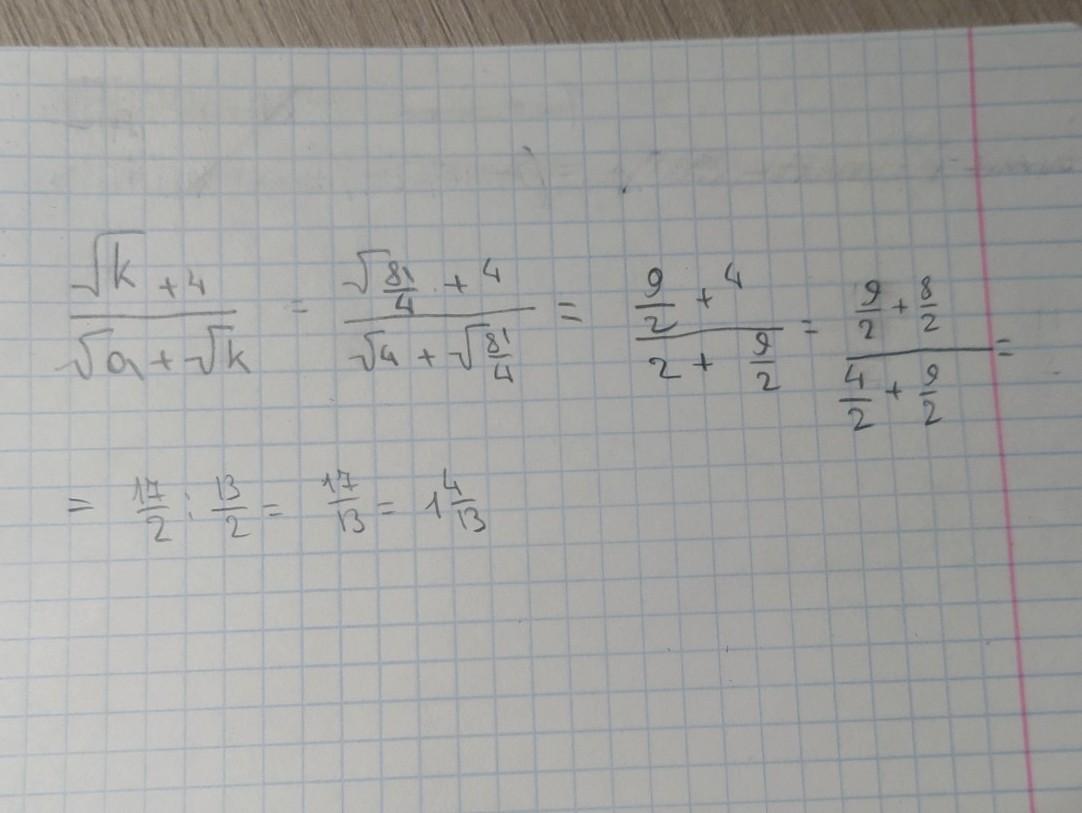 (√k + 4)/(√a + √k) = (√(81/4) + 4)/(√4 + √(81/4)) = (9/2 + 4)/(2 + 9/2) = (9/2 + 8/2)/(4/2 + 9/2) =
= 17/2 : 13/2 = 17/13 = 1 4/13